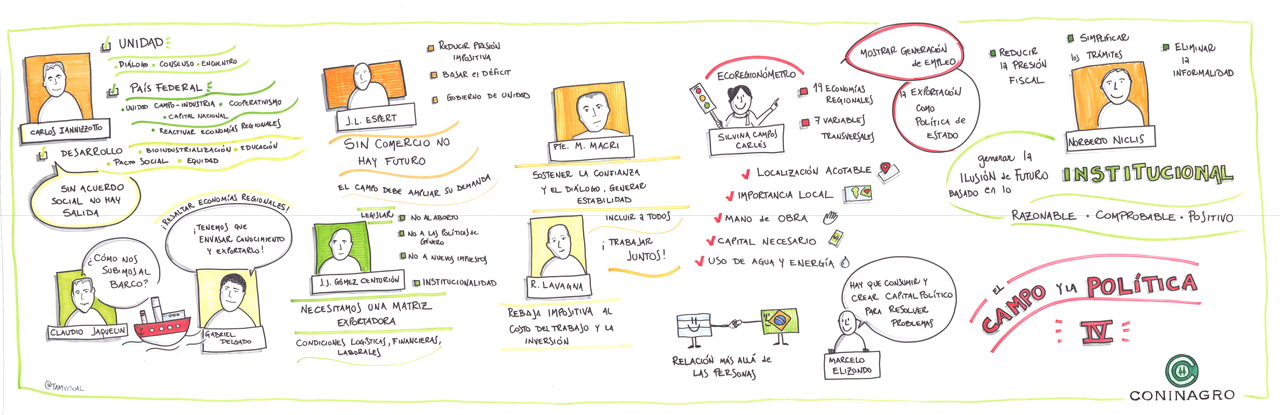 UNIDAD
DIÁLOGO · CONSENSO · ENCUENTRO
PAÍS FEDERAL
UNIDAD CAMPO-INDUSTRIA · COOPERATIVISMO
· CAPITAL NACIONAL
· REACTIVAR ECONOMÍAS REGIONALES
CARLOS IANNIZZOTO
DESARROLLO
· BIOINDUSTRIALIZACIÓN · EDUCACIÓN
· PACTO SOCIAL · EQUIDAD
SIN ACUERDO
SOCIAL NO HAY
SALIDA
¡RESALTAR ECONOMÍAS REGIONALES!
¡TENEMOS QUE
ENVASAR CONOCIMIENTO
Y EXPORTARLO!
¿CÓMO NOS
SUBIMOS AL
BARCO?
CLAUDIO JAQUELIN
GABRIEL
DELGADO
@TAMVISUAL
REDUCIR PRESIÓN
IMPOSITIVA
BAJAR el DÉFICIT
GOBIERNO DE UNIDAD
J.L. ESPERT
SIN COMERCIO NO
HAY FUTURO
EL CAMPO DEBE AMPLIAR SU DEMANDA
LEGISLAR
NO AL ABORTO
NO A LAS POLÍTICAS DE
GÉNERO
NO A NUEVOS IMPUESTOS
INSTITUCIONALIDAD
J.J. GÓMEZ CENTURIÓN
NECESITAMOS UNA MATRIZ
EXPORTADORA
CONDICIONES LOGÍSTICAS, FINANCIERAS,
LABORALES
PTE. M. MACRI
SOSTENER LA CONFIANZA
Y EL DIÁLOGO, GENERAR
ESTABILIDAD
INCLUIR a TODOS
¡TRABAJAR
JUNTOS!
R. LAVAGNA
REBAJA IMPOSITIVA AL
COSTO DEL TRABAJO Y LA
INVERSIÓN
ECOREGIONÓMETRO
19 ECONOMÍAS
REGIONALES
7 VARIABLES
TRANSVERSALES
SILVINA CAMPOS
CARLÉS
MOSTRAR GENERACIÓN
de EMPLEO
la EXPORTACIÓN
COMO
POLÍTICA DE
ESTADO
LOCALIZACIÓN ACOTABLE
IMPORTANCIA LOCAL
MANO de OBRA
CAPITAL NECESARIO
USO DE AGUA Y ENERGÍA
RELACIÓN MÁS ALLÁ de
LAS PERSONAS
HAY QUE CONSUMIR Y
CREAR CAPITAL POLÍTICO
PARA RESOLVER
PROBLEMAS
MARCELO
ELIZONDO
REDUCIR
la PRESIÓN
FISCAL
SIMPLIFICAR
los TRÁMITES
ELIMINAR
la
INFORMALIDAD
NORBERTO NICLIS
generar la
ILUSIÓN DE FUTURO
BASADO en lo
INSTITUCIONAL
RAZONABLE · COMPROBABLE · POSITIVO
EL
CAMPO Y LA POLÍTICA
IV
CONINAGRO